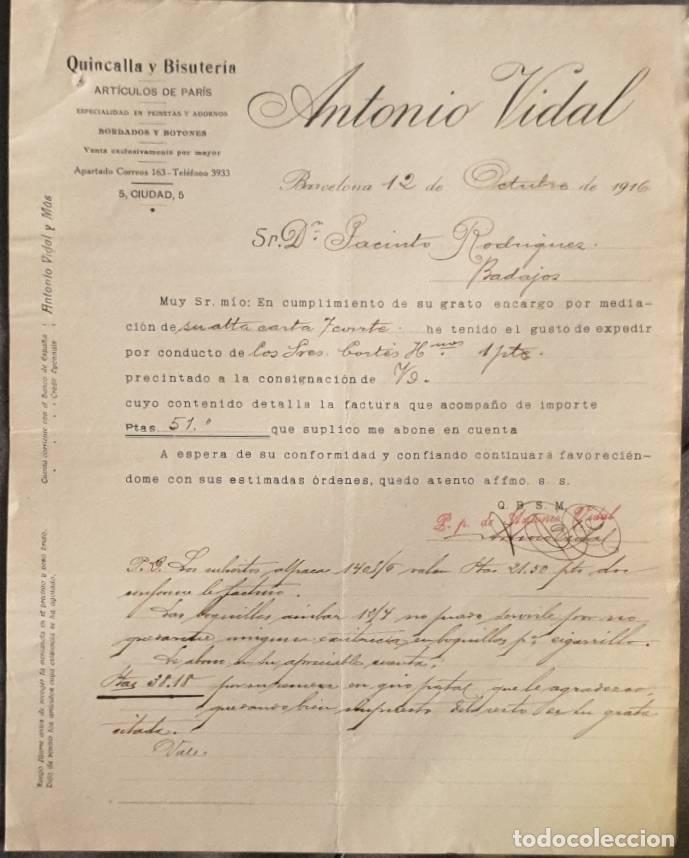 Quincalla y Bisutería
ARTÍCULOS DE PARÍS
ESPECIALIDAD EN PEINETAS Y ADORNOS
BORDADOS Y BOTONES
Venta exclusivamente por mayor
Apartado Correos 163 - Teléfono 3933
5, CIUDAD, 5
Antonio Vidal
Barcelona 12 de Octubre de 1916
Sr. Dn. Jacinto Rodriguez.
Badajos
Muy Sr. mío: En cumplimiento de su grato encargo por media-
ción de su atta carta 7 corrte. he tenido el gusto de expedir
por conducto de los Sres. Cortés Hnos 1 pte.
precintado a la consignación de V/d.
cuyo contenido detalla la factura que acompaño de importe
Ptas. 51." que suplico me abone en cuenta
A espera de su conformidad y confiando continuará favorecién-
dome con sus estimadas órdenes, quedo atento affmo. s. s.
Q. B. S. M.
P. p. de Antonio Vidal
Los cubiertos alpaca 1405/6 valen Ptas 21.50 pts doc
conforme le facturo.
Las boquillas ambar 12/4 no puedo servirle por no
boquillas pa. cigarrillo.
Le abono en su apreciable cuenta
Ptas 38.18 por su remesa en giro postal, que le agradezco,
quedando bien impuesto del resto de su grata
citada.
Vale.
Cuenta corriente con el Banco de España
Crédit Lyonnais
Antonio Vidal y Más
todocoleccion